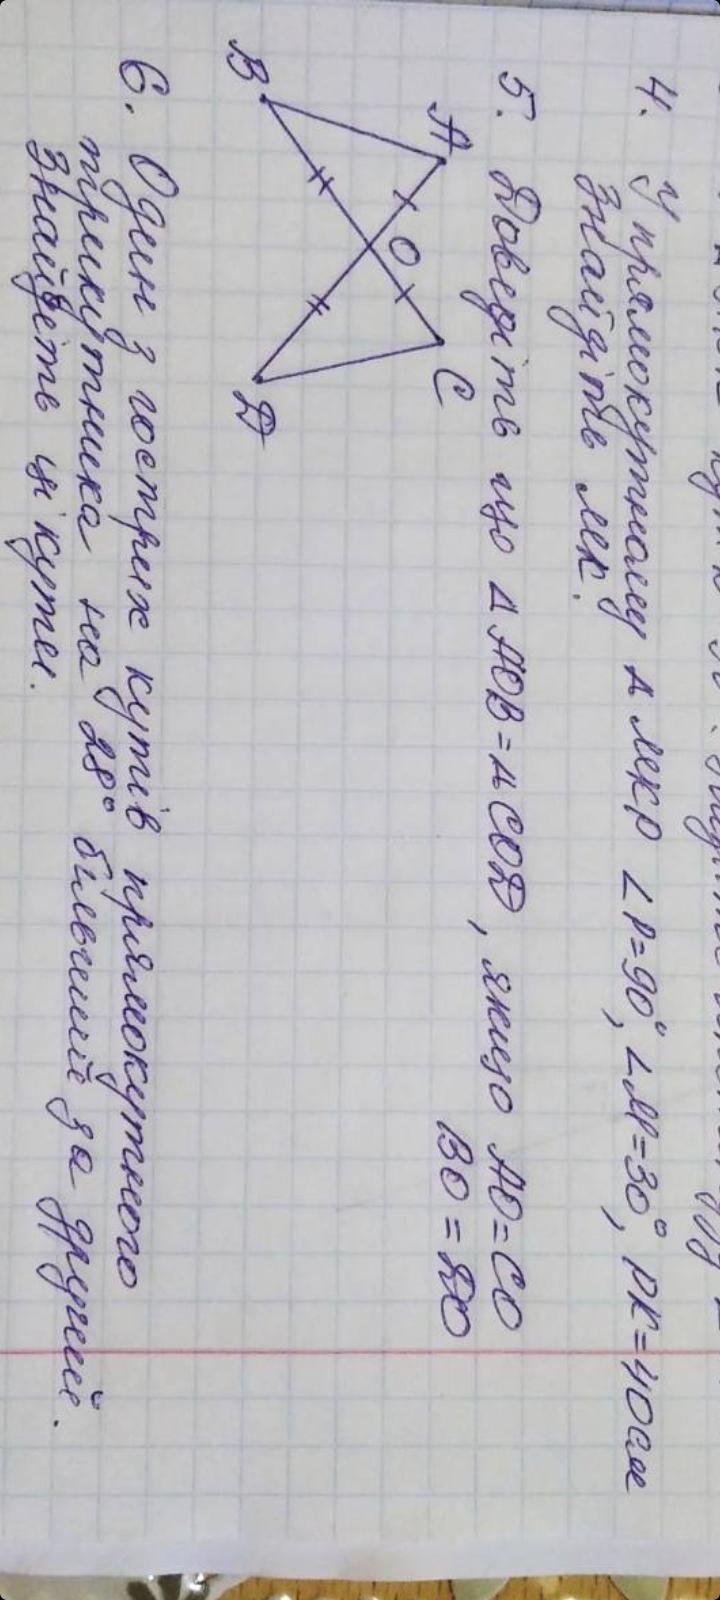 4. У прямокутному Δ МКР ∠Р=90°, ∠М=30°, РК=40см
Знайдіть МК.
5. Доведіть що Δ АОВ=Δ СОD, якщо АО=СО
ВО=DО
А
С
О
В
D
6. Один з гострих кутів прямокутного
трикутника на 28° більший за другий.
Знайдіть ці кути.